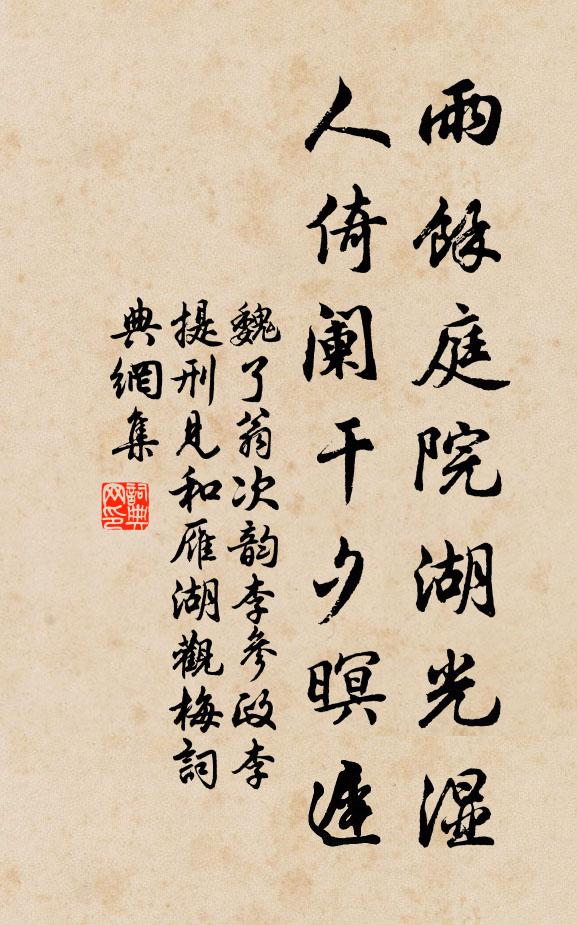 雨餘庭院湖光湿
人倚阑干夕暝遲
魏了翁次韵李參政李
提刑見和雁湖觀梅詞
典網集
詞典网印